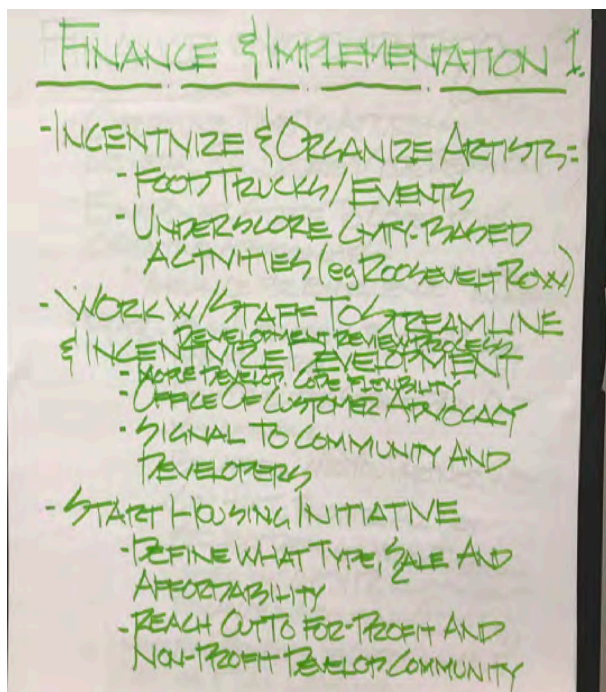 FINANCE & IMPLEMENTATION 1.
- INCENTIVIZE & ORGANIZE ARTISTS =
- FOOD TRUCKS / EVENTS
- UNDERSCORE CMTY-BASED
ACTIVITIES (eg ROOSEVELT ROW)
- WORK W/STAFF TO STREAMLINE
DEVELOPMENT REVIEW PROCESS
& INCENTIVIZE DEVELOPMENT
- MORE DEVELOP. CODE FLEXIBILITY
- OFFICE OF CUSTOMER ADVOCACY
- SIGNAL TO COMMUNITY AND
DEVELOPERS
- START HOUSING INITIATIVE
- DEFINE WHAT TYPE, SALE AND
AFFORDABILITY
- REACH OUT TO FOR-PROFIT AND
NON-PROFIT DEVELOP. COMMUNITY